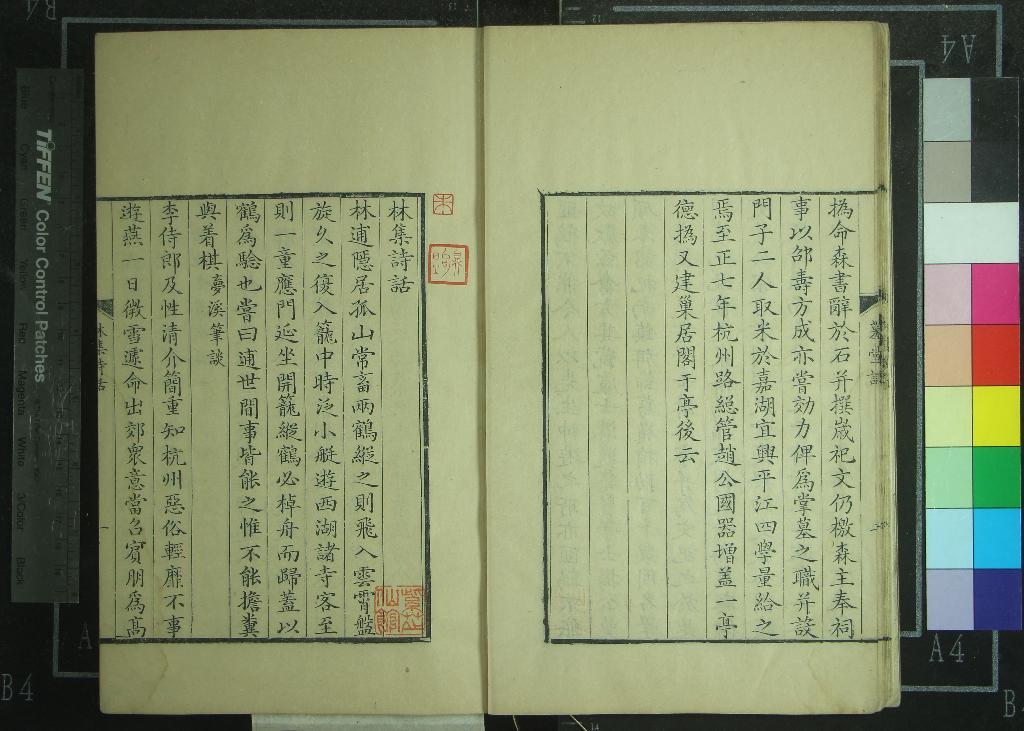 撝命森書辭於石并撰歲祀文仍檄森主奉祠
事以邵壽方成亦嘗効力俾爲掌墓之職并設
門子二人取米於嘉湖宜興平江四學量給之
焉至正七年杭州路緫管趙公國器增盖一亭
德撝又建巢居閣于亭後云
林集詩話
林逋隱居孤山常畜兩鶴縱之則飛入雲霄盤
旋久之復入籠中時泛小艇遊西湖諸寺客至
則一童應門延坐開籠縱鶴必棹舟而歸蓋以
鶴爲驗也嘗曰逋世間事皆能之惟不能擔糞
與着棋夢溪筆談
李侍郎及性清介簡重知杭州惡俗輕靡不事
遊燕一日微雪遽命出郊衆意當召賓朋爲高
林集詩話
TIFFEN Color Control Patches
Blue
Cyan
Green
Yellow
Red
Magenta
White
3/Color
Black
A4
A4
B4
B4